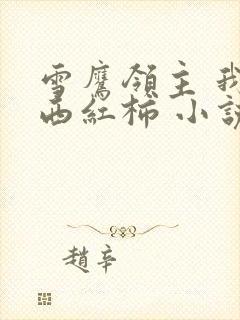 雪鷹領主 我
西紅柿 小說
趙辛